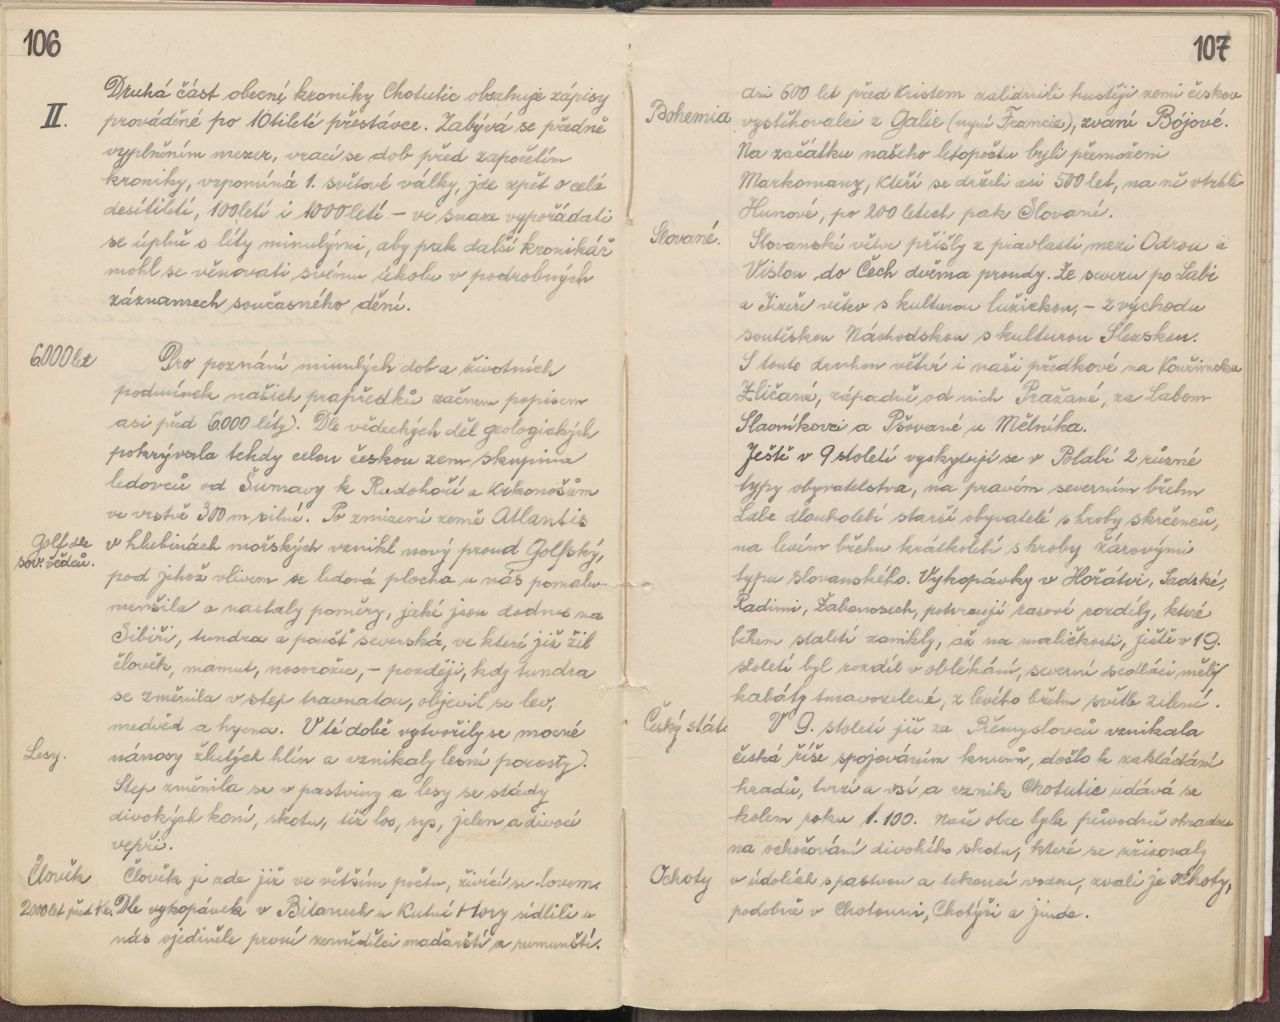 106
II.
Druhá část obecní kroniky Chotutic obsahuje zápisy
prováděné po 10tileté přestávce. Zabývá se předně
vyplněním mezer, vrací se dob před započetím
kroniky, vzpomíná 1. světové války, jde zpět o celá
desítiletí, 100letí i 1000letí – ve snaze vypořádati
se úplně s léty minulými, aby pak další kronikář
mohl se věnovati svému úkolu v podrobných
záznamech současného dění.
6.000 let
Pro poznání minulých dob a životních
podmínek našich prapředků začnem popisem
asi před 6.000 léty). Dle vědeckých děl geologických
pokrývala tehdy celou českou zem skupina
ledovců od Šumavy k Rudohoří a Krkonošům
ve vrstvě 300 m silné. Po zmizení země Atlantis
Golf dle
sov. vědců.
v hlubinách mořských vznikl nový proud Golfský,
pod jehož vlivem se ledová plocha u nás pomalu
menšila a nastaly poměry, jaké jsou dodnes na
Sibiři, tundra a poušť severská, ve které již žil
člověk, mamut, nosorožec, – později, kdy tundra
se změnila v step travnatou, objevil se lev,
medvěd a hyena. V té době vytvořily se mocné
Lesy.
nánosy žlutých hlín a vznikaly lesní porosty).
Step změnila se v pastviny a lesy se stády
divokých koní, skotu, též los, rys, jelen a divocí
vepři.
Člověk
Člověk je zde již ve větším počtu, živící se lovem.
2000 let před Kr.
Dle vykopávek v Bílanech u Kutné Hory sídlili u
nás ojediněle první zemědělci maďarští a rumunští.
107
Bohemia
Asi 600 let před Kristem zalidnili hustěji zemi českou
vystěhovalci z Galie (nyní Francie), zvaní Bójové.
Na začátku našeho letopočtu byli přemoženi
Markomany, kteří se drželi asi 500 let, na ně vtrhli
Hunové, po 200 letech pak Slované.
Slované.
Slovanské větve přišly z pravlasti mezi Odrou a
Vislou do Čech dvěma proudy. Ze severu po Labi
a Jizeře větev s kulturou lužickou, – z východu
soutěskou Náchodskou s kulturou Slezskou.
S touto druhou větví i naši předkové na Kouřimsku
Zličané, západně od nich Pražané, za Labem
Slavníkovci a Pšované u Mělníka.
Ještě v 9 století vyskytují se v Polabí 2 různé
typy obyvatelstva, na pravém severním břehu
Labe dlouholebí starší obyvatelé s hroby skrčenců,
na levém břehu krátkolebí s hroby žárovými
typu slovanského. Vykopávky v Hořátvi, Sadské,
Radimi, Žabonosech, potvrzují rasové rozdíly, které
během staletí zanikly, až na maličkosti, ještě v 19.
století byl rozdíl v oblékání, severní sedláci měli
kabáty tmavozelené, z levého břehu světle zelené.
Český stát.
V 9. století již za Přemyslovců vznikala
česká říše spojováním kmenů, došlo k zakládání
hradů, tvrzí a vsí a vznik Chotutic udává se
kolem roku 1.100. Naše obec byla původně ohradou
na ochočování divokého skotu, které se zřizovaly
Ochoty
v údolích s pastvou a tekoucí vodou, zvali je ochoty,
podobně v Chotouni, Chotýši a jinde.